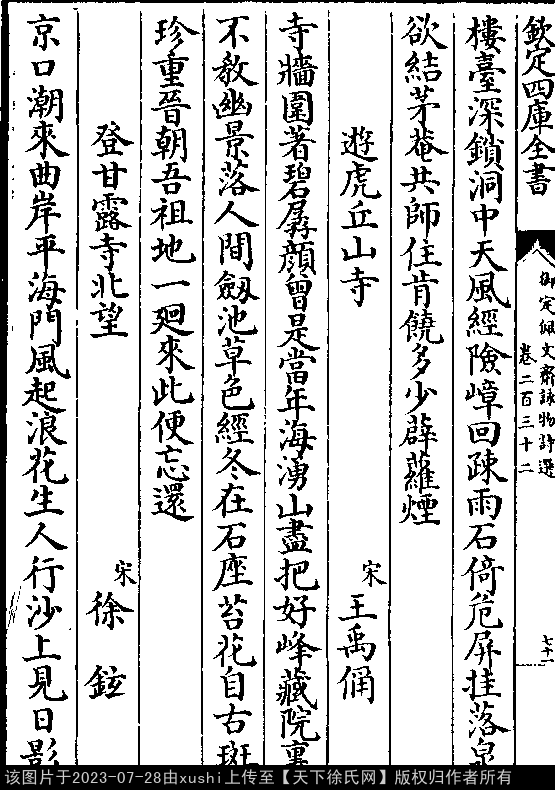 欽定四庫全書
御定佩文齋詠物詩選
卷二百三十二
七十一
樓臺深鎖洞中天風經險嶂回疎雨石倚危屏挂落泉
欲結茅菴共師住肯饒多少薜蘿煙
遊虎丘山寺
宋 王禹偁
寺牆圍著碧孱顏曾是當年海湧山盡把好峰藏院裏
不教幽景落人間劔池草色經冬在石座苔花自古斑
珍重晉朝吾祖地一廻來此便忘還
登甘露寺北望
宋 徐鉉
京口潮來曲岸平海門風起浪花生人行沙上見日影
该图片于2023-07-28由xushi上传至【天下徐氏网】版权归作者所有